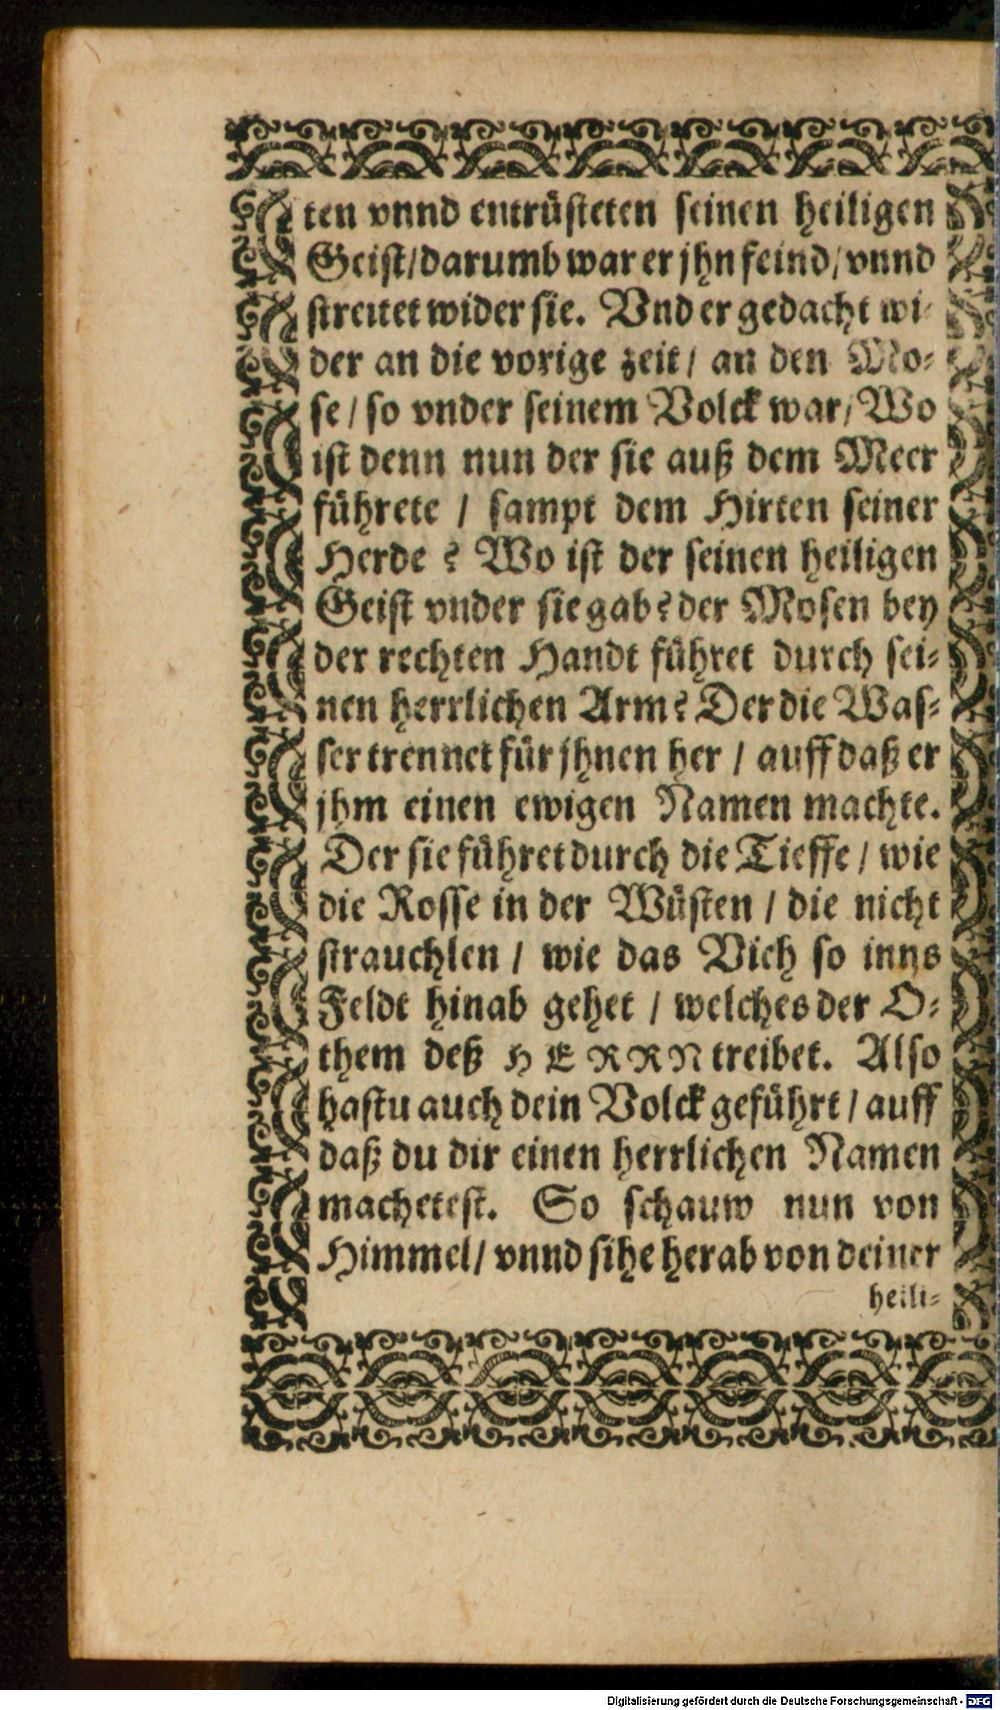 ten vnnd entrüsteten seinen heiligen
Geist/darumb war er jhn feind/vnnd
streitet wider sie. Vnd er gedacht wi-
der an die vorige zeit/ an den Mo-
se/ so vnder seinem Volck war/ Wo
ist denn nun der sie auß dem Meer
führete / sampt dem Hirten seiner
Herde ? Wo ist der seinen heiligen
Geist vnder sie gab? der Mosen bey
der rechten Handt führet durch sei-
nen herrlichen Arm? Der die Was-
ser trennet für jhnen her / auff daß er
jhm einen ewigen Namen machte.
Der sie führet durch die Tieffe / wie
die Rosse in der Wüsten / die nicht
strauchlen / wie das Vieh so inns
Feldt hinab gehet / welches der O-
them deß HERRN treibet. Also
hastu auch dein Volck geführt / auff
daß du dir einen herrlichen Namen
machetest. So schauw nun von
Himmel/ vnnd sihe herab von deiner
heili-
Digitalisierung gefördert durch die Deutsche Forschungsgemeinschaft - DFG